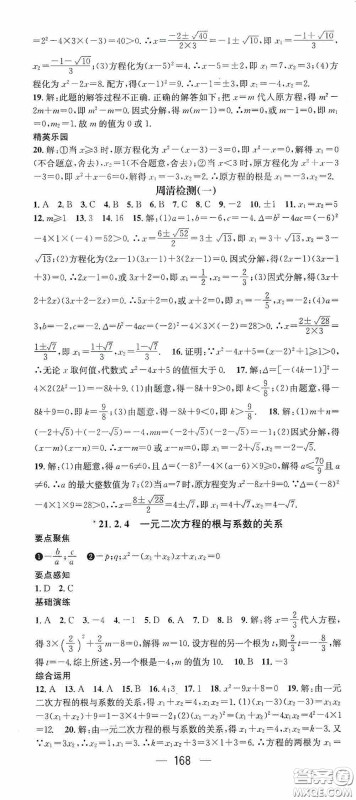 =2²-4×3×(-3)=40>0.∴x=(-2±√40)/(2×3)=(-1±√10)/3,即 x₁=(-1+√10)/3,
x₂=(-1-√10)/3;(3)方程化为 x²-5x=±2,即 x₁=7,x₂=3;(4)方程
化为 x²-2x=8.配方,得(x-1)²=9.∴x-1=±3,即 x₁=-4,x₂=2.
19.解:此题的解答过程不正确.正确的解答如下:把 x=m 代入原方程,得 m³-
2m+m=0,即 m³-m=0.因式分解,得 m(m-1)=0.∴m=0,或 m-1=0,即
m₁=0,m₂=1.故 m 的值为 0 或 1.
精英乐园
20.解:①当 x≥3 时,原方程化为 x²-(x-3)-3=0,即 x²-x=0,解得 x₁=0
(不合题意,舍去),x₂=1(不合题意,舍去);②当 x<3 时,原方程化为 x²+x-3
-3=0,即 x²+x-6=0,解得 x₁=-3,x₂=2.∴原方程的根是 x₁=-3,x₂=2.
周清检测(一)
1.A 2.B 3.C 4.B 5.B 6.C 7.C 8.C 9.-2 10.±1 11.x=5
12.m≥1 13.3 14.16 15.解:(1)a=1,b=-6,c=-4,Δ=b²-4ac=(-6)²
-4×1×(-4)=52>0.∴x=(6±√52)/2=3±√13,即 x₁=3+√13,x₂=3-
√13;(2)方程化为(2x-1)(3x+1)-(2x-1)(2x-1)=0.因式分解,得(2x-1)(x
+2)=0.∴2x-1=0,或 x+2=0,即 x₁=1/2,x₂=-2;(3)因式分解,得(3x+
2+2x)(3x+2-2x)=0.∴5x+2=0,或 x+2=0,即 x₁=-2/5,x₂=-2;(4)a=
3,b=-2,c=-2,Δ=b²-4ac=(-2)²-4×3×(-2)=28>0.∴x=(2±√28)/(2×3)=
(1±√7)/3,即 x₁=(1+√7)/3,x₂=(1-√7)/3. 16.证明:∵x²-4x+5=(x-2)²+1≥1>0,
∴无论 x 取何值,代数式 x²-4x+5 的值恒大于 0. 17.解:Δ=[-(4k-1)]²-
4×2(2k²-1)=-8k+9.(1)由题意,得-8k+9>0,即 k<9/8;(2)由题意,得
-8k+9=0,即 k=9/8;(3)由题意,得-8k+9<0,即 k>9/8. 18.解:(1)m+n=
(-2+√5)+(-2-√5)=-4,mn=(-2+√5)(-2-√5)=-1;(2)因式分解,得
(x-m)(x-n)=0.∴x-m=0,或 x-n=0,即 x₁=m,x₂=n.
19.解:(1)由题意,得 a-6≠0,且Δ=(-8)²-4(a-6)×9≥0,解得 a≤70/9且 a≠
6.∴a 的最大整数值为 7;(2)当 a=7 时,原方程化为 x²-8x+9=0,Δ=(-8)²
-4×1×9=28>0,∴x=(8±√28)/2=4±√7,即 x₁=4+√7,x₂=4-√7.
*21.2.4 一元二次方程的根与系数的关系
要点聚焦
❶-b/a;c/a ❷-p;q;x²-(x₁+x₂)x+x₁x₂=0
要点感知
1.D 2.C
基础演练
1.A 2.C 3.-4 4.-1 5.D 6.A 7.D 8.B 9.D 10.解:将 x=2/3代入方程,
得 3×(2/3)²+2/3m-8=0,解得 m=10.设方程的另一个根为 t,则2/3t=-8/3,解
得 t=-4.综上所述,另一个根为-4,m 的值为 10. 10.B 11.-3
综合运用
12.A 13.A 14.A 15.D 16.4 17.1 18.x²-9x+8=0 19.解:由一元
二次方程的根与系数的关系,得 x₁+x₂=4,x₁x₂=1.∵(x₁-3)(x₂-3)=x₁x₂
-3(x₁+x₂)+9=1-3×4+9=-2.(2)(x₁-x₂)²=(x₁+x₂)²-4x₁x₂=4²-4×1=
12. 20.解:由一元二次方程的根与系数的关系,得 x₁+x₂=4,x₁x₂=k-3.又
∵x₁=3x₂,∴x₁=3,x₂=1,∴k=x₁x₂+3=3×1+3=6.∴方程的两根为 x₁=
168